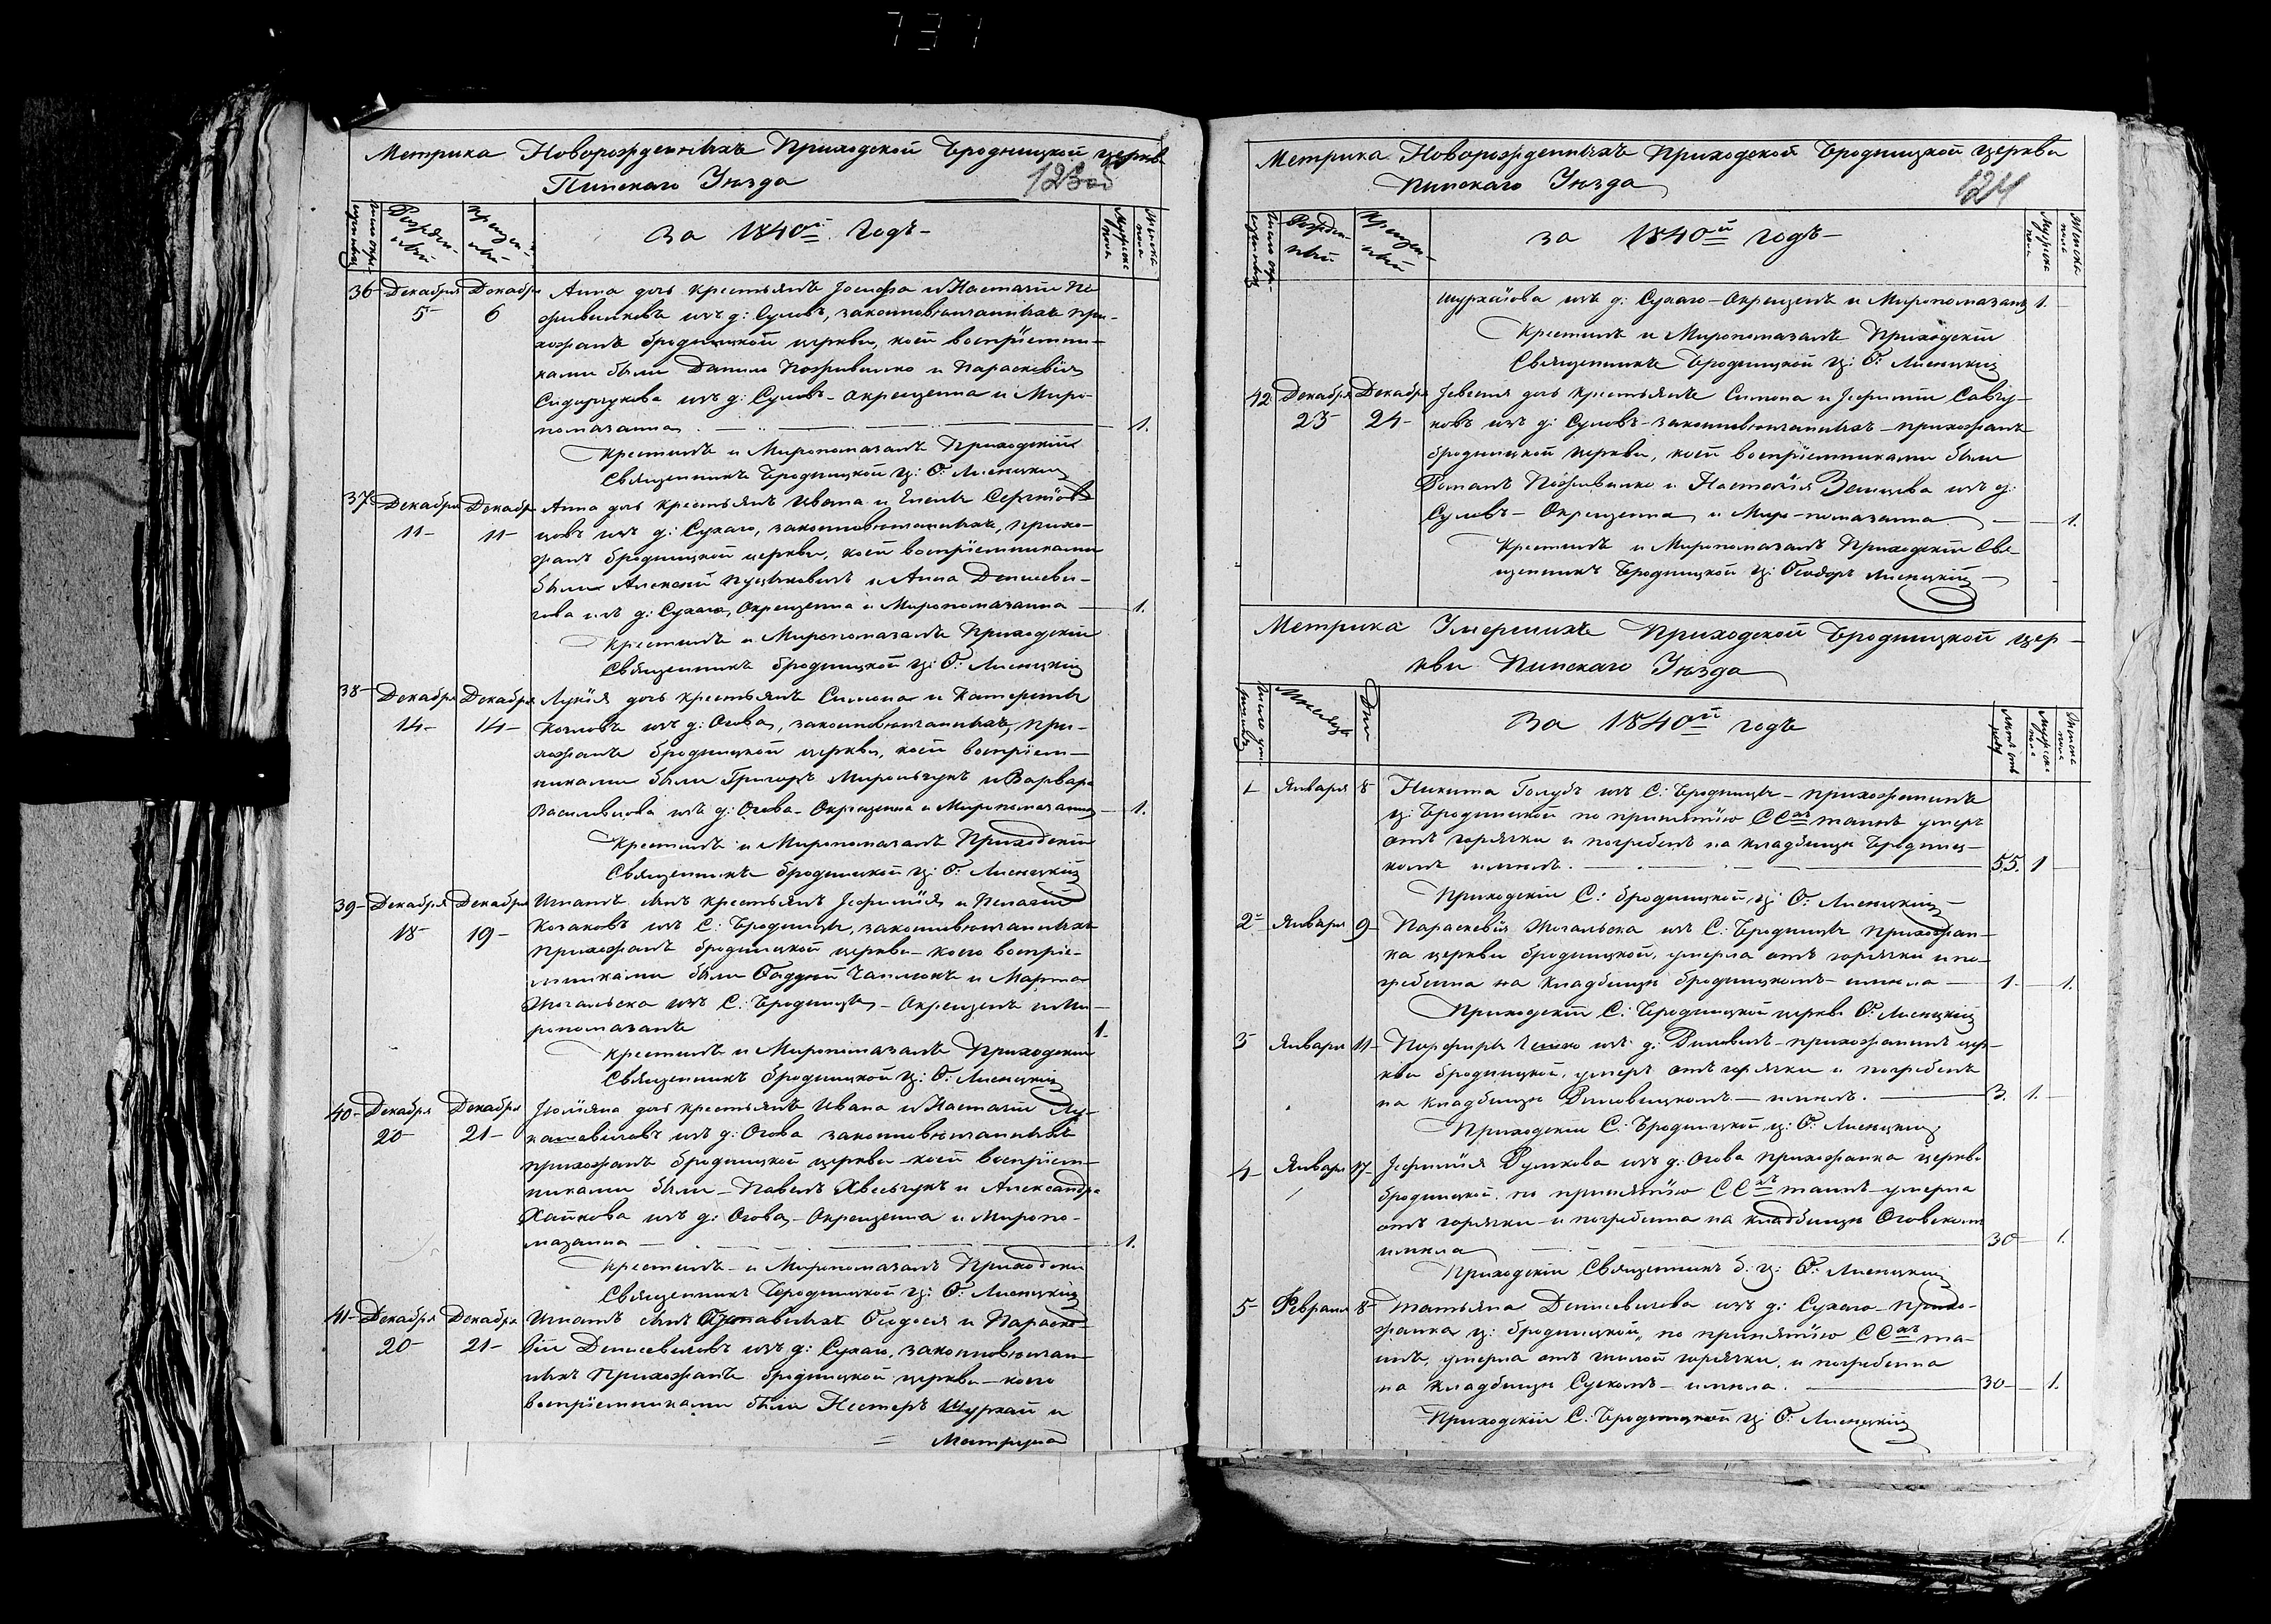 737
Метрика Новорожденныхъ Приходской Бродницкой церкви
Пинскаго Уѣзда
123об
Число окре-
щенныхъ
Рожден-
ный
Крещен-
ный
За 1840й Годъ
Мужеска
пола
Женска
пола
36 Декабря Декабря Анна дочь крестьянъ Іосифа и Настасіи По
5 6 живилковъ изъ д: Суловъ, законновѣнчанныхъ при-
хожанъ бродницкой церкви, коей воспріемни-
ками были Данило Поживилко и Параскевія
Сидорчукова изъ д: Суловъ - окрещенна и Миро-
помазанна 1.
Крестилъ и Миропомазалъ Приходскій
Священникъ Бродницкой ц: Ѳ: Лисецкій
37 Декабря Декабр Анна дочь крестьянъ Ивана и Елены
11 11 изъ д: Сухаго, законновѣнчанныхъ, прихо-
жанъ бродницкой церкви, коей воспріемниками
были Алексей и Анна Денисеви-
чова изъ д: Сухаго, Окрещенна и Миропомазанна 1.
Крестилъ и Миропомазалъ Приходскій
Священникъ бродницкой ц: Ѳ: Лисецкій
38 Декабря Декабря Лукія дочь крестьянъ Симона и Катерины
14 14 Козловъ изъ д: Огова, законновѣнчанныхъ, при-
хожанъ бродницкой церкви, коей воспріем-
никами были Григорь Мирончукъ и Варвара
изъ д: Огова - Окрещенна и Миропомазанна 1.
Крестилъ и Миропомазалъ Приходскій
Священникъ бродницкой ц: Ѳ: Лисецкій
39 Декабря Декабря Игнатъ сынъ крестьянъ Іефимія и Пелагіи
18 19 Козаковъ изъ С: Бродницы, законновѣнчанныхъ
Прихожанъ бродницкой церкви - коего воспріе-
мниками были и Марта
изъ С: Бродницы - Окрещенъ и Ми-
ропомазанъ 1.
Крестилъ и Миропомазалъ Приходскій
Священникъ бродницкой ц: Ѳ: Лисецкій
40 Декабря Декабря Іюліяна дочь крестьянъ Ивана и Настасіи Лу-
20 21 кашевичовъ изъ д: Огова законновѣнчанныхъ
прихожанъ бродницкой церкви коей воспріем-
никами были - Павелъ Хвесьчукъ и Александра
Хайкова изъ д: Огова - Окрещенна и Миропо-
мазанна 1.
Крестилъ и Миропомазалъ Приходскій
Священникъ Бродницкой ц: Ѳ: Лисецкій
41 Декабря Декабря Игнатъ сынъ Ѳеодосія и Параске-
20 21 віи Денисевичовъ изъ д: Сухаго, законновѣнчан-
ныхъ Прихожанъ бродницкой церкви - коего
воспріемниками были Нестеръ Шурхай и
Матруна
Метрика Новорожденныхъ Приходской Бродницкой церкви
Пинскаго Уѣзда
124
Число окре-
щенныхъ
Рожден-
ный
Крещен-
ный
За 1840й годъ
Мужеска
пола
Женска
пола
шурхаіова изъ д: Сухаго - Окрещенъ и Миропомазанъ 1.
Крестилъ и Миропомазалъ Приходскій
Священникъ Бродницкой ц: Ѳ: Лисецкій
42 Декабря Декабря Іевгенія дочь крестьянъ Симона и Іефиміи Савчу-
23 24 ковъ изъ д: Суловъ - законновѣнчанныхъ - прихожанъ
бродницкой церкви, коей воспріемниками были
Романъ Поживилко и Настасія изъ д:
Суловъ - Окрещенна и Миро-помазанна 1.
Крестилъ и Миропомазалъ Приходскій Свя-
щенникъ Бродницкой ц: Ѳеодоръ Лисецкій
Метрика Умершихъ Приходской Бродницкой цер-
кви Пинскаго Уѣзда
Число уме-
ршихъ
Мѣсяцъ
Дни
За 1840й годъ
Лѣтъ отъ
роду
Мужеска
пола
Женска
пола
1 Января 8 Никита Голубъ изъ С: Бродницы - прихожанинъ
ц: Бродницкой по принятію ССхъ таинъ умеръ
отъ горячки и погребенъ на кладбищѣ Бродниц-
комъ имѣлъ. 55. 1
Приходскій С: бродницкой ц: Ѳ: Лисецкій
2 Января 9 Параскевія изъ С: Бродницы прихожан-
ка церкви бродницкой, умерла отъ горячки и по-
гребенна на кладбищѣ бродницкомъ - имѣла 1. 1.
Приходскій С: Бродницкой церкви Ѳ: Лисецкій
3 Января 11 Порфиръ изъ д: - прихожанинъ цер-
кви бродницкой, умеръ отъ горячки и погребенъ
на кладбищѣ - имѣлъ. 3. 1.
Приходскій С: Бродницкой ц: Ѳ: Лисецкій
4 Января 17 Іефимія изъ д: Огова прихожанка церкви
бродницкой, по принятію ССхъ таинъ - умерла
отъ горячки - и погребенна на кладбищѣ Оговскомъ
имѣла 30 1.
Приходскій Священникъ б: ц: Ѳ: Лисецкій
5 Февраля 8 Татьяна Денисевичова изъ д: Сухаго - прихо-
жанка ц: бродницкой, по принятію ССхъ та-
инъ, умерла отъ гнилой горячки, и погребенна
на кладбищѣ Сускомъ - имѣла. 30 1.
Приходскій С: Бродницкой ц: Ѳ: Лисецкій